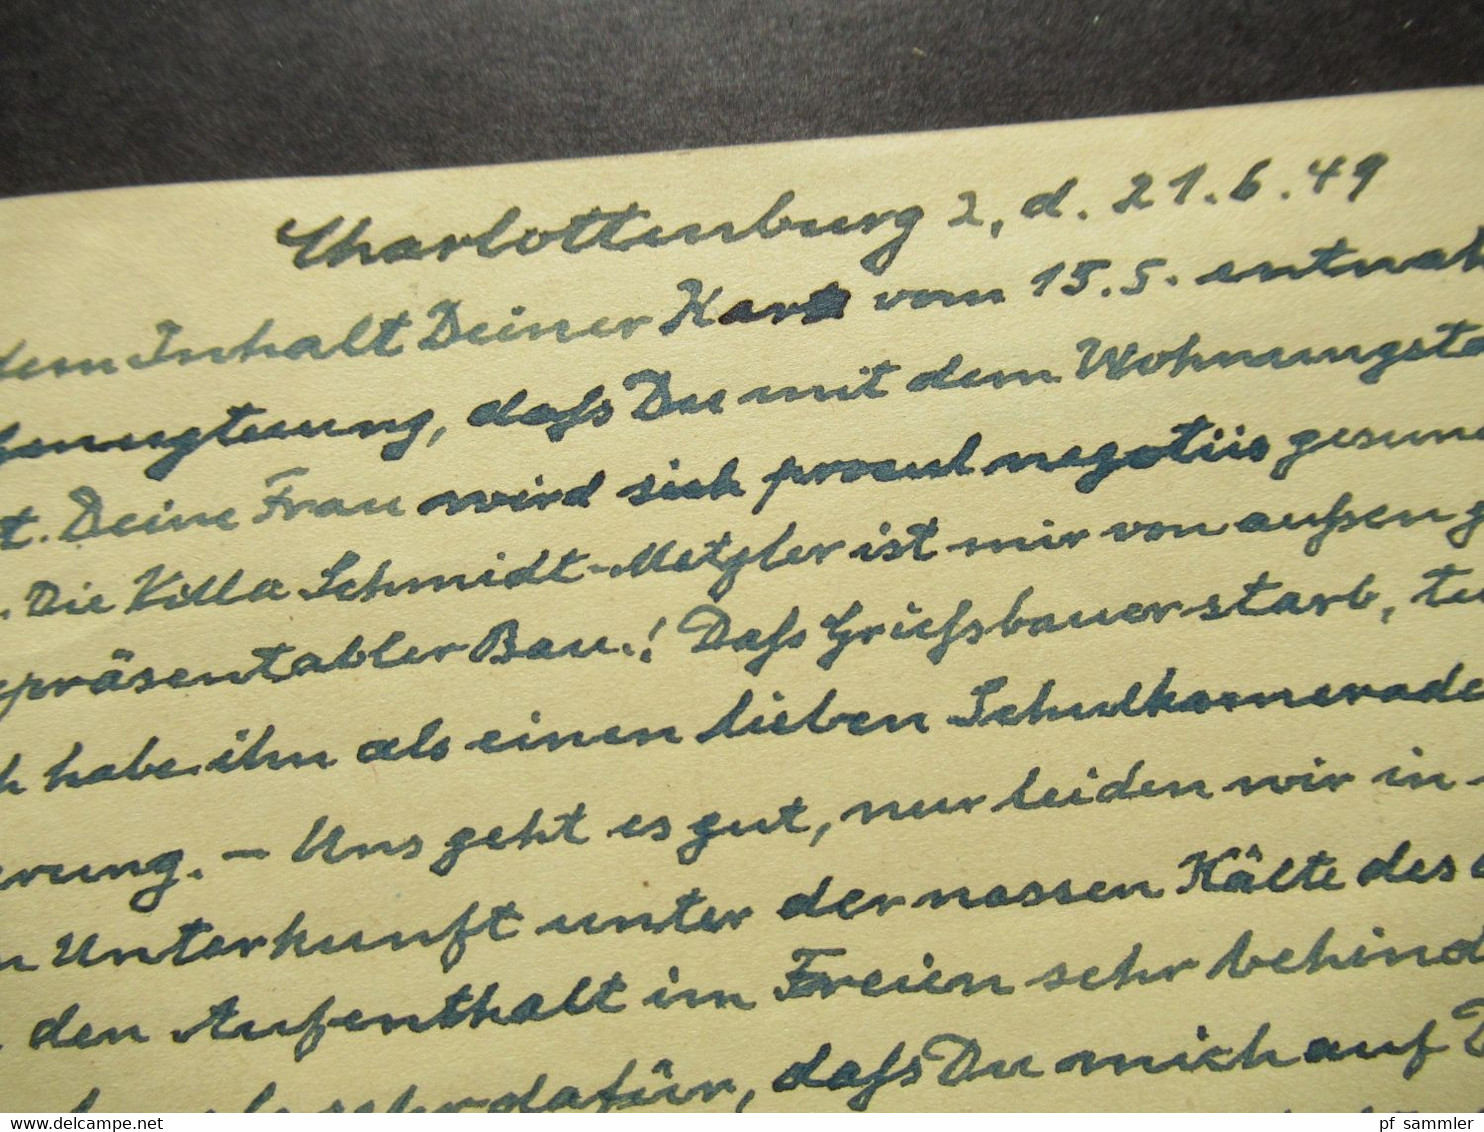 Charlottenburg 2, d. 21.6.49
dem Inhalt Deiner Karte vom 15.5. entnah
genugtuung, daß Du mit dem Wohnungsta
t. Deine Frau wird sich procul negotiis gesun
. Die Villa Schmidt-Metzler ist mir von außen g
epräsentabler Bau.! Daß Grießbauer starb, tu
h habe ihn als einen lieben Schulkamerade
erung. – Uns geht es gut, nur leiden wir in-
n Unterkunft unter der nassen Kälte des
den Aufenthalt im Freien sehr behind
sehr dafür, daß Du mich auf D
www.delcampe.net
pf_sammler